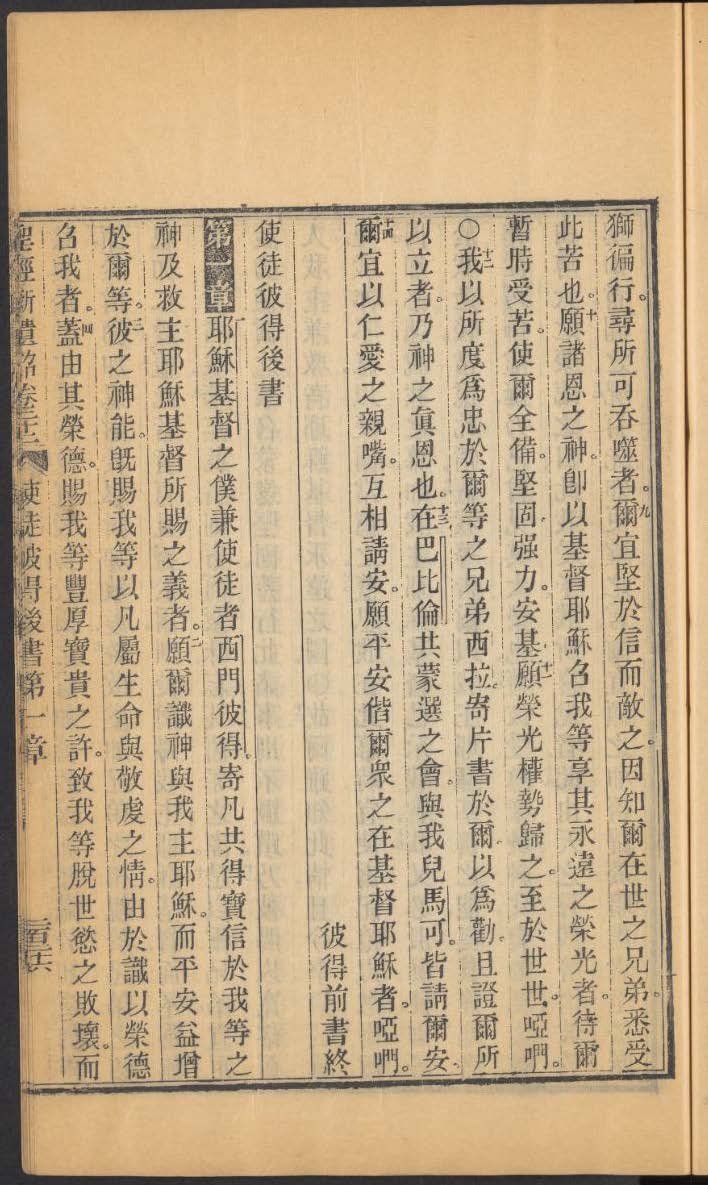 獅徧行。尋所可吞噬者。九爾宜堅於信而敵之。因知爾在世之兄弟。悉受
此苦也。十願諸恩之神。卽以基督耶穌召我等享其永遠之榮光者。待爾
暫時受苦。使爾全備。堅固。强力。安基。十一願榮光權勢歸之。至於世世。啞㘄。
○十二我以所度爲忠於爾等之兄弟西拉。寄片書於爾。以爲勸。且證爾所
以立者。乃神之眞恩也。十三在巴比倫共蒙選之會。與我兒馬可。皆請爾安。
十四爾宜以仁愛之親嘴。互相請安。願平安偕爾衆之在基督耶穌者。啞㘄。
彼得前書終
使徒彼得後書
第一章一耶穌基督之僕兼使徒者西門彼得。寄凡共得寶信於我等之
神及救主耶穌基督所賜之義者。二願爾識神與我主耶穌。而平安益增
於爾等。三彼之神能。旣賜我等以凡屬生命與敬虔之情。由於識以榮德
召我者。四蓋由其榮德。賜我等豐厚寶貴之許。致我等脫世慾之敗壞。而
聖經新遺詔卷 使徒彼得後書第一章